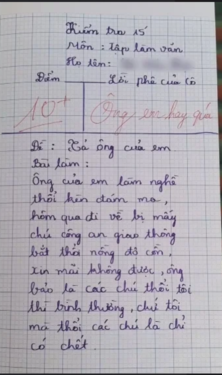 Kiểm tra 15
Môn : tập làm văn
Họ tên:
Điểm Lời phê của cô
10+ Ông em hay quá
Đề : Tả ông của em
Bài làm :
Ông của em làm nghề
thổi kèn đám ma,
hôm qua đi về bị mấy
chú công an giao thông
bắt thổi nồng độ cồn,
xin mãi không được, ông
bảo là các chú thổi tôi
thì bình thường, chứ tôi
mà thổi các chú là chỉ
có chết.